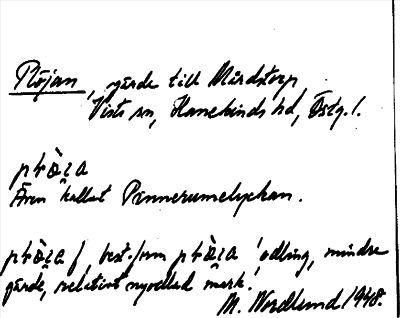 Plöjan, gärde till Mårdstorp
Vists sn, Hanekinds hd, Östg. l.
Även kallat Pannerumslyckan.
f, best. form 'odling, mindre
gärde, relativt nyodlad mark.'
M. Nordlund 1948.